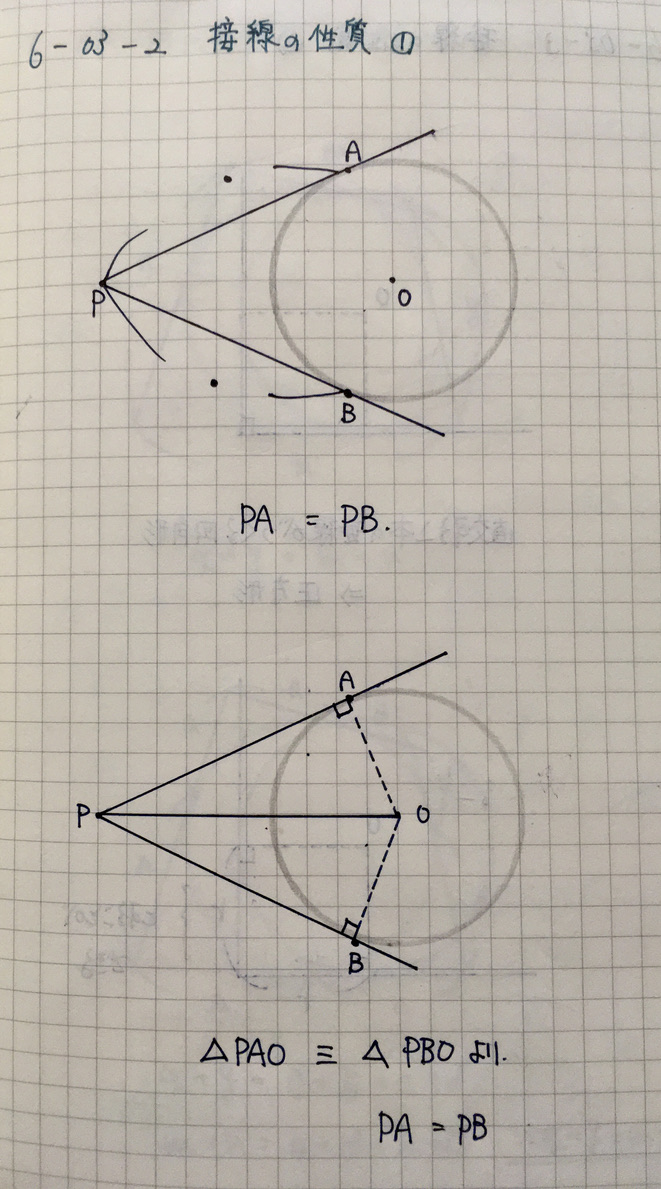 6-03-2 接線の性質 ①
A
P
O
B
PA = PB.
A
P
O
B
△PAO ≡ △PBO より.
PA = PB